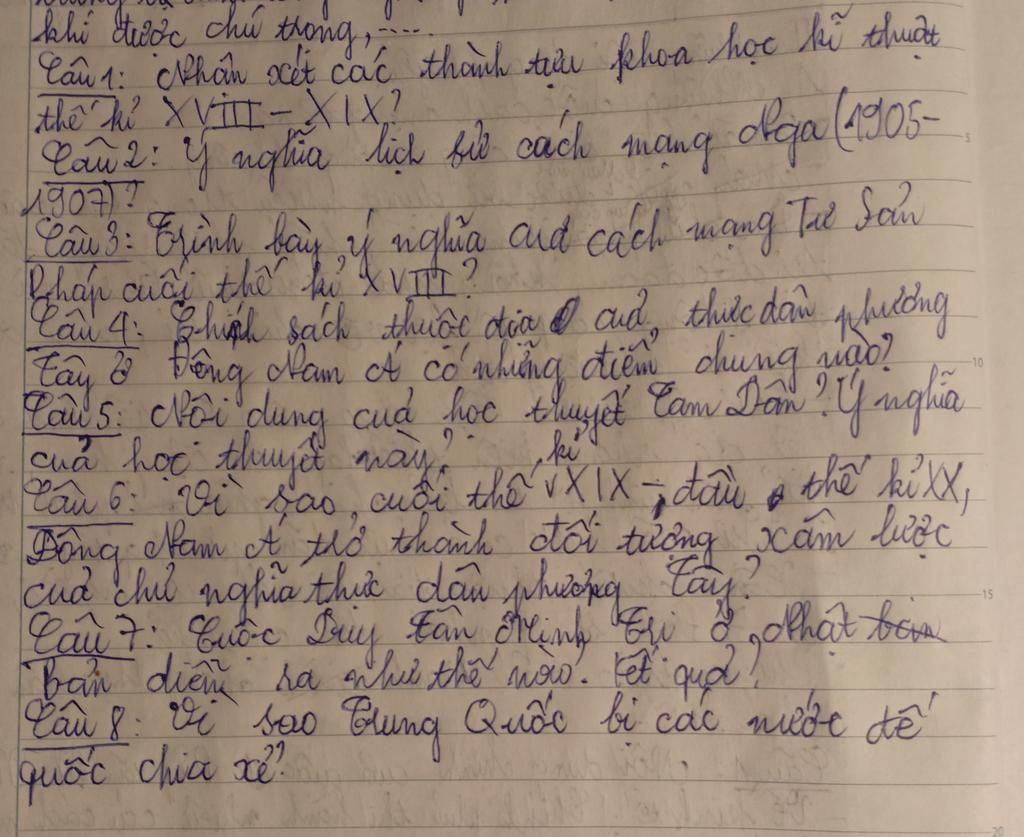 khi được chú trọng, .....
Câu 1: Nhận xét các thành tựu khoa học kĩ thuật
thế kỉ XVIII - XIX?
Câu 2: Ý nghĩa lịch sử cách mạng Nga (1905-
1907)?
Câu 3: Trình bày ý nghĩa của cách mạng Tư Sản
Pháp cuối thế kỉ XVIII?
Câu 4: Chính sách thuộc địa của thực dân phương
Tây ở Đông Nam Á có những điểm chung nào?
Câu 5: Nội dung của học thuyết Tam Dân? Ý nghĩa
của học thuyết này?
Câu 6: Vì sao, cuối thế kỉ XIX - đầu thế kỉ XX,
Đông Nam Á trở thành đối tượng xâm lược
của chủ nghĩa thực dân phương Tây?
Câu 7: Cuộc Duy Tân Minh Trị ở Nhật
Bản diễn ra như thế nào. Kết quả?
Câu 8: Vì sao Trung Quốc bị các nước đế
quốc chia xẻ?